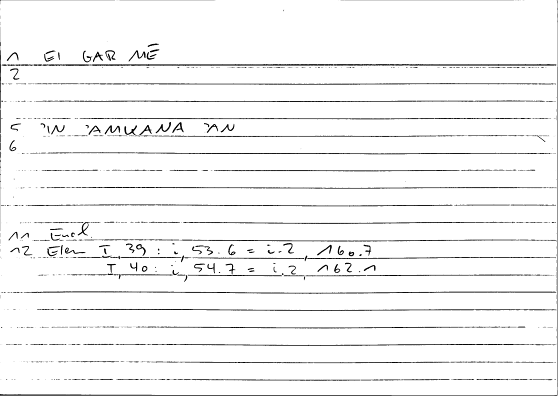 1 EI GAR MĒ
2
5 'IN 'AMUANA 'AN
6
11 Eucl.
12 Elem I, 39 : i, 53.6 = i.2, 160.7
I, 40 : i, 54.7 = i.2, 162.1